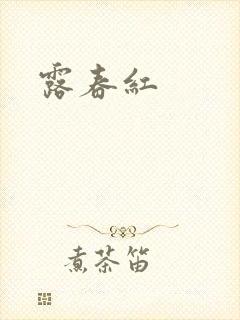 露春紅
煮茶笛